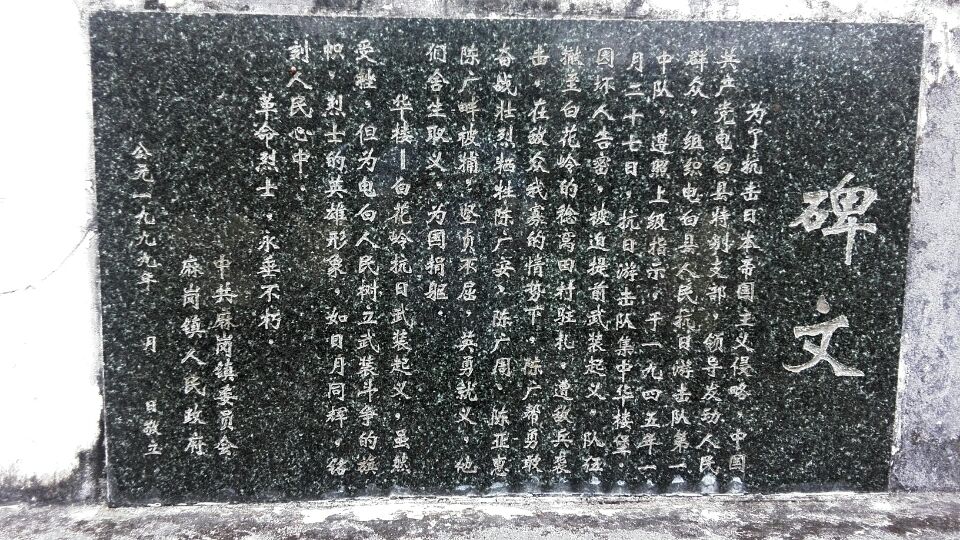 碑文
为了抗击日本帝国主义侵略，中国
共产党电白县特别支部，领导发动人民
群众，组织电白县人民抗日游击队第一
中队，遵照上级指示，于一九四五年一
月二十七日，抗日游击队集中华楼堡．
因坏人告密，被迫提前武装起义．队伍
撤至白花岭的稔窝田村驻扎，遭敌兵袭
击．在敌众我寡的情势下．陈广帮勇敢
奋战壮烈牺牲陈广安、陈广周、陈正惠
陈广畔被捕．坚贞不屈，英勇就义，他
们舍生取义，为国捐躯．
华楼—白花岭抗日武装起义，虽然
受挫，但为电白人民树立武装斗争的旗
帜，烈士的英雄形象，如日月同辉，铭
刻人民心中．
革命烈士，永垂不朽．
中共麻岗镇委员会
麻岗镇人民政府
公元一九九九年　月　日敬立